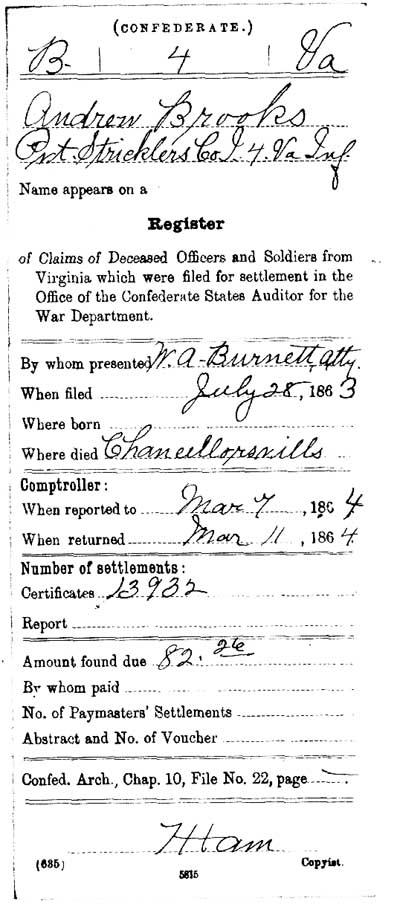 (CONFEDERATE.)
B. | 4 | Va
Andrew Brooks
Pvt. Stricklers Co I. 4. Va Inf.
Name appears on a
Register
of Claims of Deceased Officers and Soldiers from
Virginia which were filed for settlement in the
Office of the Confederate States Auditor for the
War Department.
By whom presented W. A. Burnett, atty.
When filed July 28, 1863
Where born
Where died Chancellorsvills
Comptroller:
When reported to Mar 7, 1864
When returned Mar 11, 1864.
Number of settlements:
Certificates 13932
Report
Amount found due 82.26
By whom paid
No. of Paymasters' Settlements
Abstract and No. of Voucher
Confed. Arch., Chap. 10, File No. 22, page
Ham
(635) Copyist.
5815